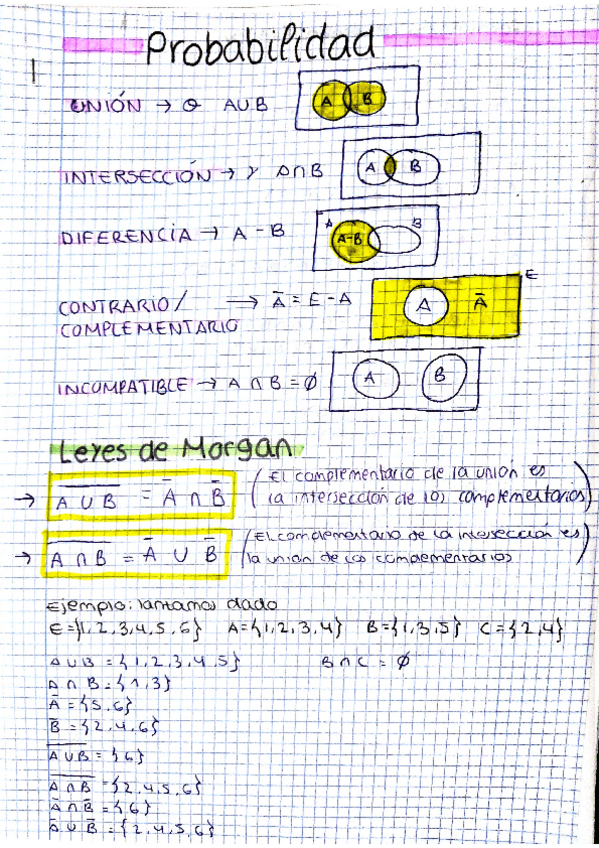 Probabilidad
UNIÓN → O A∪B
A B
INTERSECCIÓN → Y A∩B
A B
DIFERENCIA → A - B
A B
A-B
CONTRARIO/ → Ā = E - A
COMPLEMENTARIO
E
A Ā
INCOMPATIBLE → A ∩ B = ∅
A B
Leyes de Morgan
→ A̅ ̅∪̅ ̅B̅ = Ā ∩ B̅ (El complementario de la unión es
la intersección de los complementarios)
→ A̅ ̅∩̅ ̅B̅ = Ā ∪ B̅ (El complementario de la intersección es
la unión de los complementarios)
Ejemplo: lanzamos dado
E={1,2,3,4,5,6} A={1,2,3,4} B={1,3,5} C={2,4}
A∪B = {1,2,3,4,5} B∩C = ∅
A∩B = {1,3}
Ā = {5,6}
B̅ = {2,4,6}
A̅∪̅B̅ = {6}
A̅∩̅B̅ = {2,4,5,6}
Ā∩B̅ = {6}
Ā∪B̅ = {2,4,5,6}